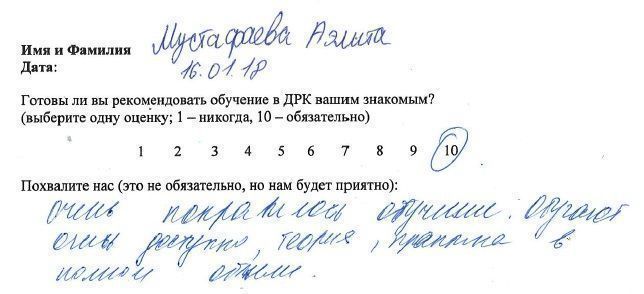 Имя и Фамилия Мустафаева Аэлита
Дата: 16.01.18
Готовы ли вы рекомендовать обучение в ДРК вашим знакомым?
(выберите одну оценку; 1 – никогда, 10 – обязательно)
1 2 3 4 5 6 7 8 9 10
Похвалите нас (это не обязательно, но нам будет приятно):
очень понравилось обучение. Обучают
очень доступно, теория, практика в
полной